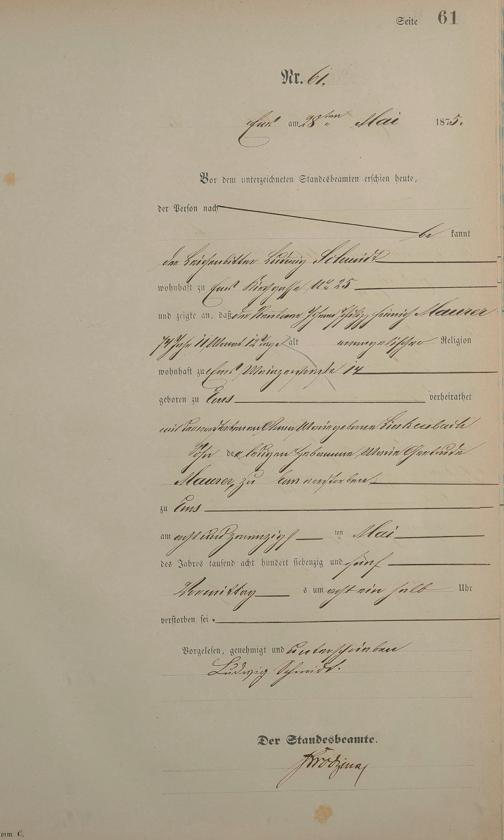 Seite 61
Nr. 61.
Ems am 28ten Mai 1875.
Vor dem unterzeichneten Standesbeamten erschien heute,
der Person nach
be kannt
der Leichenbitter Ludwig Schmidt
wohnhaft zu Ems Kirchgasse No 25
und zeigte an, daß der Rentner Heinrich Maurer
74 Jahr 11 Monat 12 Tage alt evangelischer Religion
wohnhaft zu Ems 14
geboren zu Ems verheirathet
mit geborenen
Sohn der Hebamme Marie Gertrude
Maurer, zu Ems verstorben
zu Ems
am acht und zwanzigst ten Mai
des Jahres tausend acht hundert siebenzig und fünf
Vormittag s um acht ein halb Uhr
verstorben sei.
Vorgelesen, genehmigt und unterschrieben
Ludwig Schmidt.
Der Standesbeamte.
orm. C.